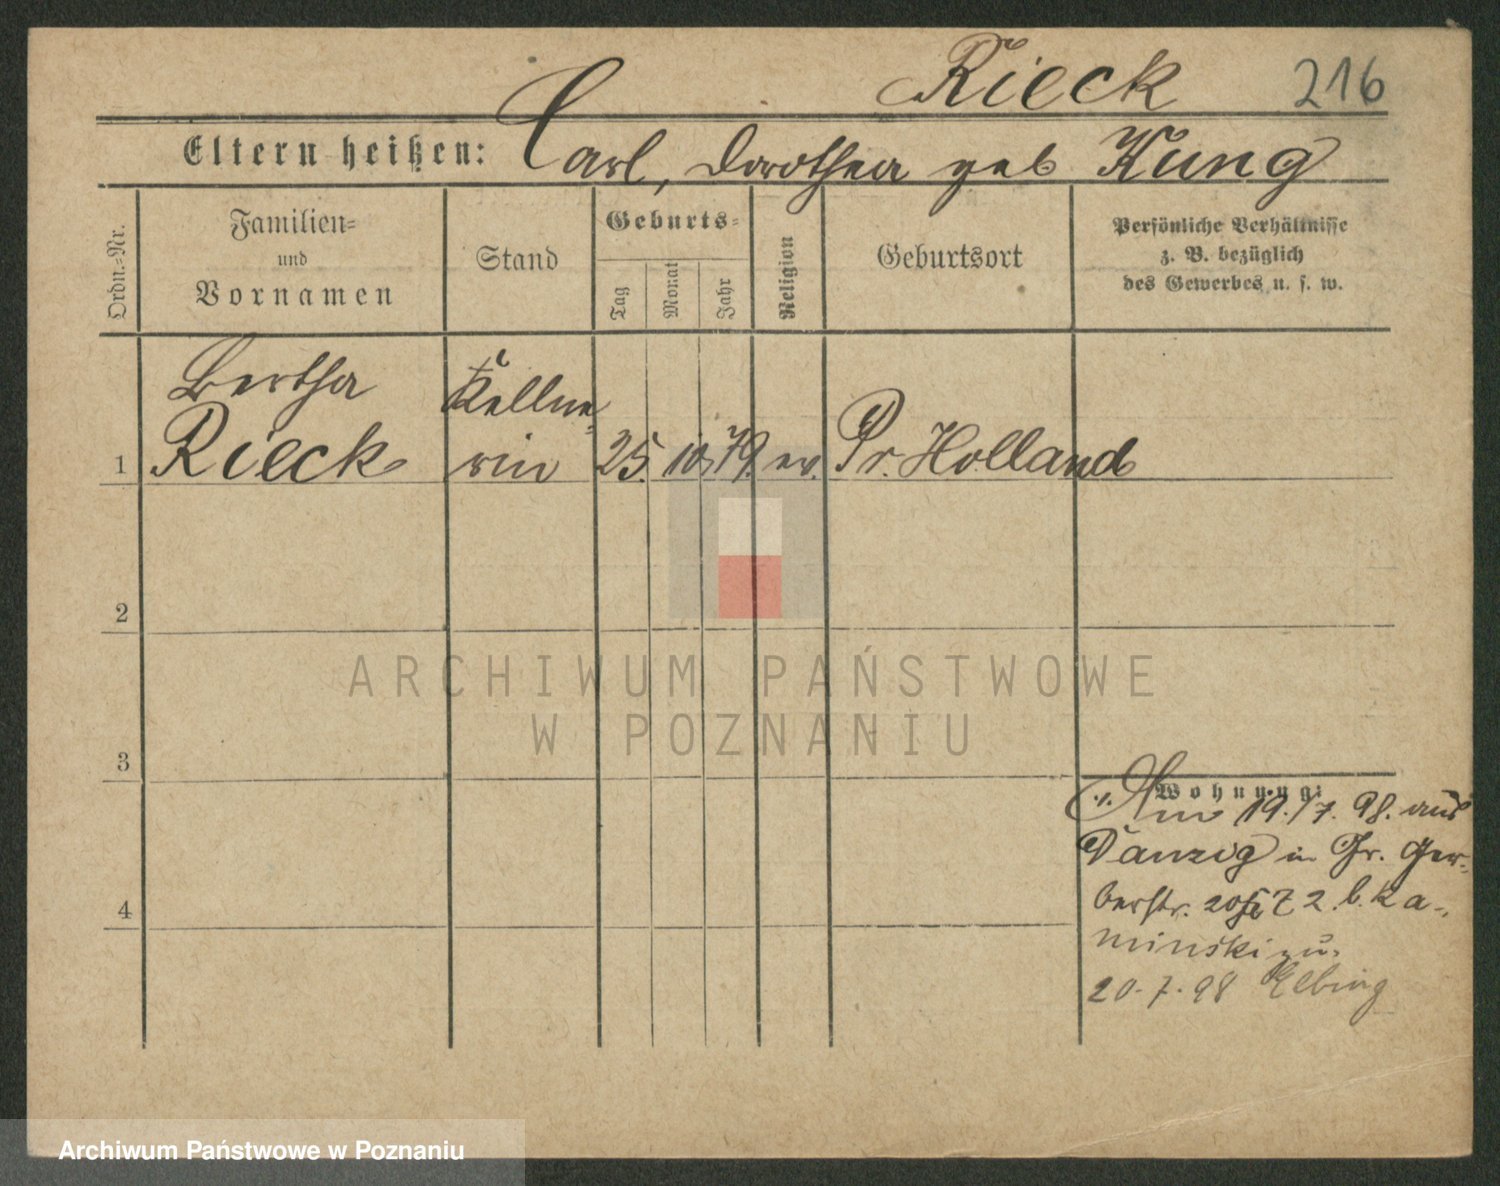 Rieck 216
Eltern heißen: Carl, Dorothea geb Kung
Ordn.=Nr.
Familien=
und
Vornamen
Stand
Geburts=
Tag
Monat
Jahr
Religion
Geburtsort
Persönliche Verhältnisse
z. B. bezüglich
des Gewerbes u. s. w.
Bertha
Rieck
Kellne=
rin
1 25. 10. 79. ev. Pr. Holland
2
ARCHIWUM PAŃSTWOWE
W POZNANIU
3
Wohnung:
Am 19./7. 98. aus
Danzig in Gr. Ger=
berstr. 20 Z 2. b. Ka=
minski zu.
4
20.7.98 Elbing
Archiwum Państwowe w Poznaniu